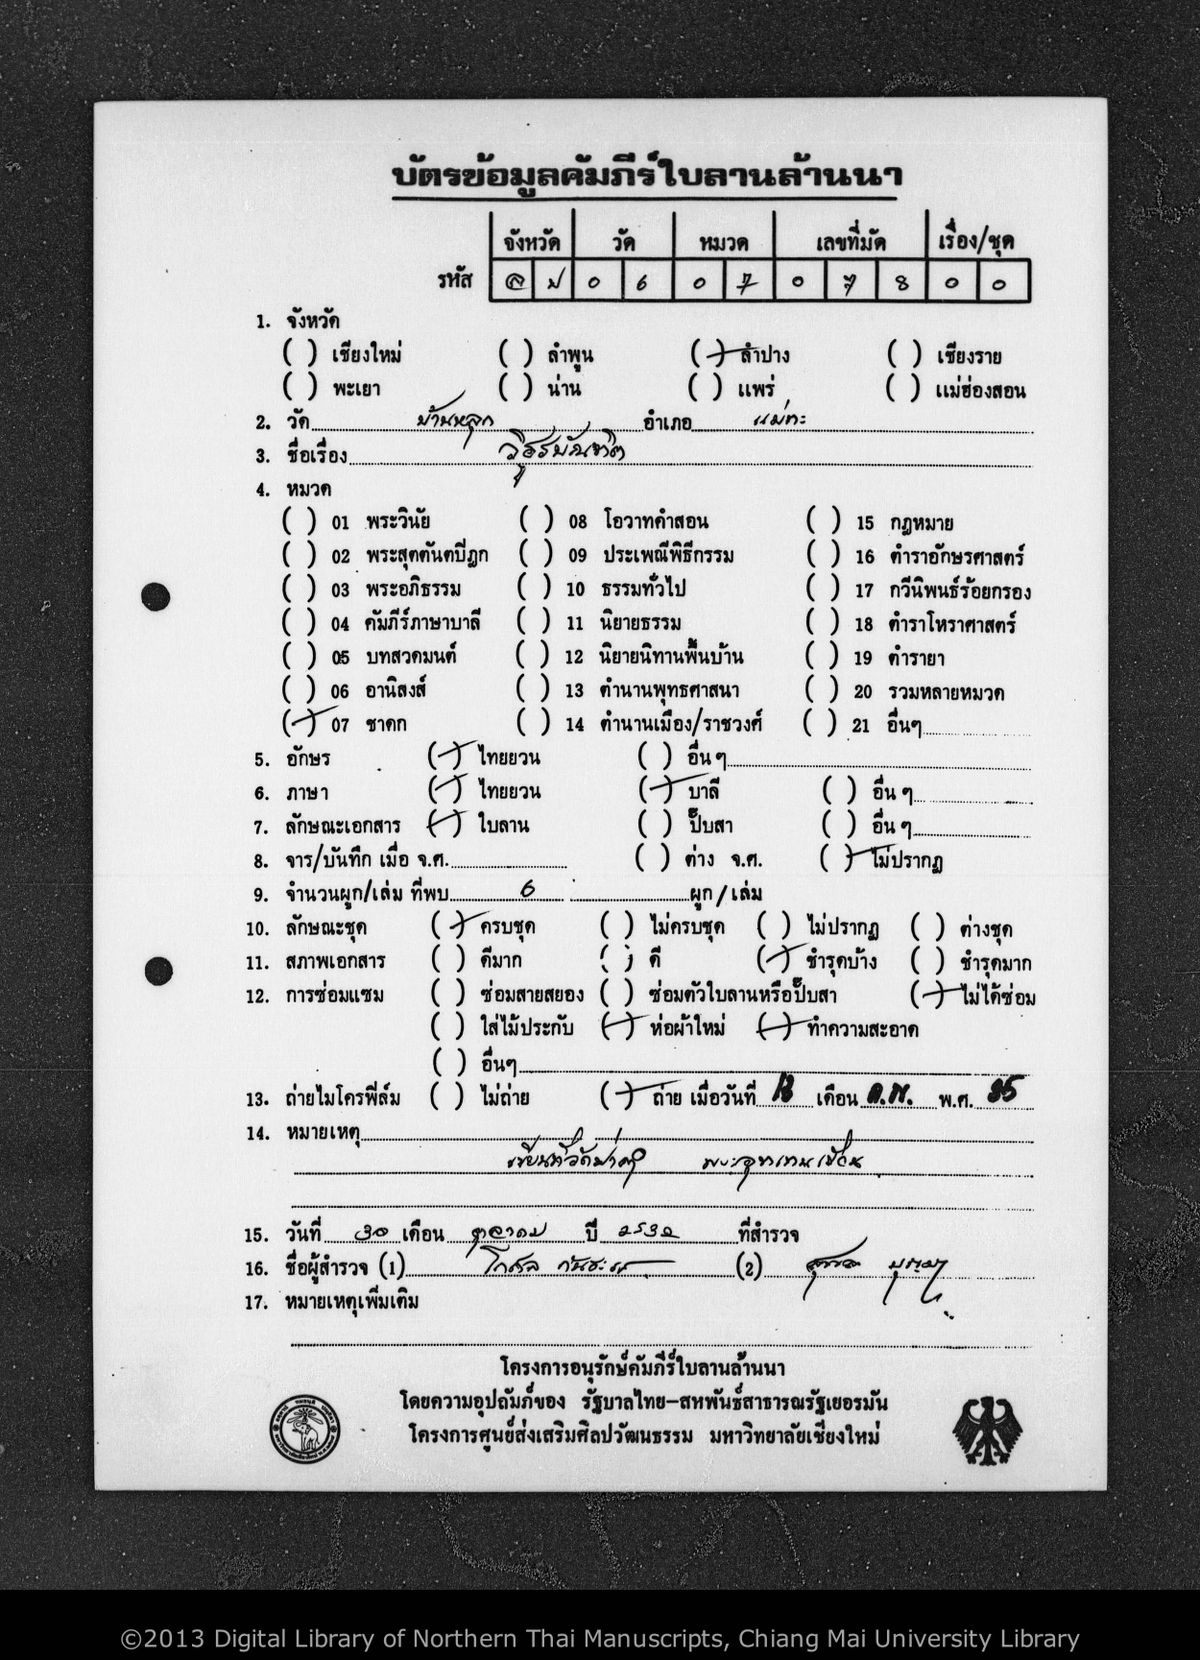 บัตรข้อมูลคัมภีร์ใบลานล้านนา
จังหวัด วัด หมวด เลขที่มัด เรื่อง/ชุด
รหัส ล ป 0 6 0 7 0 7 8 0 0
1. จังหวัด
( ) เชียงใหม่ ( ) ลำพูน (/) ลำปาง ( ) เชียงราย
( ) พะเยา ( ) น่าน ( ) แพร่ ( ) แม่ฮ่องสอน
2. วัด บ้านหลุก อำเภอ แม่ทะ
3. ชื่อเรื่อง วิธูรบัณฑิต
4. หมวด
( ) 01 พระวินัย ( ) 08 โอวาทคำสอน ( ) 15 กฎหมาย
( ) 02 พระสุตตันตปิฎก ( ) 09 ประเพณีพิธีกรรม ( ) 16 ตำราอักษรศาสตร์
( ) 03 พระอภิธรรม ( ) 10 ธรรมทั่วไป ( ) 17 กวีนิพนธ์ร้อยกรอง
( ) 04 คัมภีร์ภาษาบาลี ( ) 11 นิยายธรรม ( ) 18 ตำราโหราศาสตร์
( ) 05 บทสวดมนต์ ( ) 12 นิยายนิทานพื้นบ้าน ( ) 19 ตำรายา
( ) 06 อานิสงส์ ( ) 13 ตำนานพุทธศาสนา ( ) 20 รวมหลายหมวด
(/) 07 ชาดก ( ) 14 ตำนานเมือง/ราชวงศ์ ( ) 21 อื่นๆ
5. อักษร (/) ไทยยวน ( ) อื่น ๆ
6. ภาษา (/) ไทยยวน (/) บาลี ( ) อื่น ๆ
7. ลักษณะเอกสาร (/) ใบลาน ( ) ปั๊บสา ( ) อื่น ๆ
8. จาร/บันทึก เมื่อ จ.ศ. ( ) ต่าง จ.ศ. (/) ไม่ปรากฏ
9. จำนวนผูก/เล่ม ที่พบ 6 ผูก / เล่ม
10. ลักษณะชุด (/) ครบชุด ( ) ไม่ครบชุด ( ) ไม่ปรากฏ ( ) ต่างชุด
11. สภาพเอกสาร ( ) ดีมาก ( ) ดี (/) ชำรุดบ้าง ( ) ชำรุดมาก
12. การซ่อมแซม ( ) ซ่อมสายสยอง ( ) ซ่อมตัวใบลานหรือปั๊บสา (/) ไม่ได้ซ่อม
( ) ใส่ไม้ประกับ (/) ห่อผ้าใหม่ (/) ทำความสะอาด
( ) อื่นๆ
13. ถ่ายไมโครฟิล์ม ( ) ไม่ถ่าย (/) ถ่าย เมื่อวันที่ เดือน พ.ศ. 35
14. หมายเหตุ
15. วันที่ 30 เดือน ตุลาคม ปี 2532 ที่สำรวจ
16. ชื่อผู้สำรวจ (1) (2)
17. หมายเหตุเพิ่มเติม
โครงการอนุรักษ์คัมภีร์ใบลานล้านนา
โดยความอุปถัมภ์ของ รัฐบาลไทย-สหพันธ์สาธารณรัฐเยอรมัน
โครงการศูนย์ส่งเสริมศิลปวัฒนธรรม มหาวิทยาลัยเชียงใหม่
©2013 Digital Library of Northern Thai Manuscripts, Chiang Mai University Library